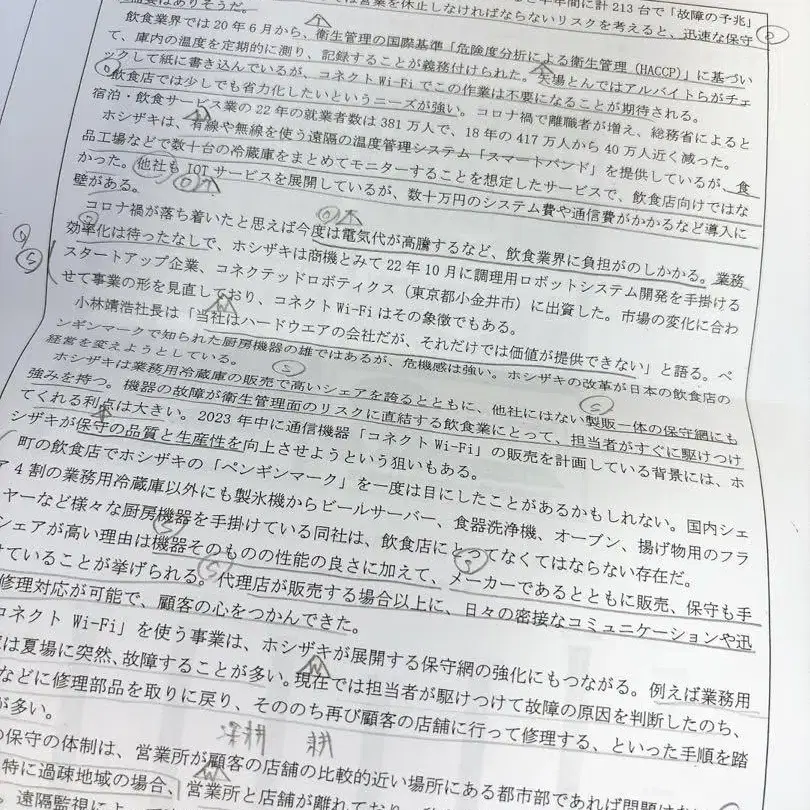 は営業を休止しなければならないリスクを考えると、迅速な保守
飲食業界では20年6月から、衛生管理の国際基準「危険度分析による衛生管理（HACCP）」に基づい
て、庫内の温度を定期的に測り、記録することが義務付けられた。矢場とんではアルバイトらがチェ
ックして紙に書き込んでいるが、コネクトWi-Fiでこの作業は不要になることが期待される。
飲食店では少しでも省力化したいというニーズが強い。コロナ禍で離職者が増え、総務省によると
宿泊・飲食サービス業の22年の就業者数は381万人で、18年の417万人から40万人近く減った。
ホシザキは、有線や無線を使う遠隔の温度管理システム「スマートバンド」を提供しているが、食
品工場などで数十台の冷蔵庫をまとめてモニターすることを想定したサービスで、飲食店向けではな
かった。他社も IOT サービスを展開しているが、数十万円のシステム費や通信費がかかるなど導入に
壁がある。
コロナ禍が落ち着いたと思えば今度は電気代が高騰するなど、飲食業界に負担がのしかかる。業務
効率化は待ったなしで、ホシザキは商機とみて22年10月に調理用ロボットシステム開発を手掛ける
スタートアップ企業、コネクテッドロボティクス（東京都小金井市）に出資した。市場の変化に合わ
せて事業の形を見直しており、コネクトWi-Fiはその象徴でもある。
小林靖浩社長は「当社はハードウエアの会社だが、それだけでは価値が提供できない」と語る。ペ
ンギンマークで知られた厨房機器の雄ではあるが、危機感は強い。ホシザキの改革が日本の飲食店の
経営を変えようとしている。
ホシザキは業務用冷蔵庫の販売で高いシェアを誇るとともに、他社にはない製販一体の保守網にも
強みを持つ。機器の故障が衛生管理面のリスクに直結する飲食業にとって、担当者がすぐに駆けつけ
てくれる利点は大きい。2023年中に通信機器「コネクトWi-Fi」の販売を計画している背景には、ホ
シザキが保守の品質と生産性を向上させようという狙いもある。
町の飲食店でホシザキの「ペンギンマーク」を一度は目にしたことがあるかもしれない。国内シェ
ア4割の業務用冷蔵庫以外にも製氷機からビールサーバー、食器洗浄機、オーブン、揚げ物用のフラ
イヤーなど様々な厨房機器を手掛けている同社は、飲食店にとってなくてはならない存在だ。
シェアが高い理由は機器そのものの性能の良さに加えて、メーカーであるとともに販売、保守も手
けていることが挙げられる。代理店が販売する場合以上に、日々の密接なコミュニケーションや迅
修理対応が可能で、顧客の心をつかんできた。
コネクト Wi-Fi」を使う事業は、ホシザキが展開する保守網の強化にもつながる。例えば業務用
は夏場に突然、故障することが多い。現在では担当者が駆けつけて故障の原因を判断したのち、
などに修理部品を取りに戻り、そののち再び顧客の店舗に行って修理する、といった手順を踏
が多い。
深耕 耕
の保守の体制は、営業所が顧客の店舗の比較的近い場所にある都市部であれば問題は
特に過疎地域の場合、営業所と店舗が離れており、